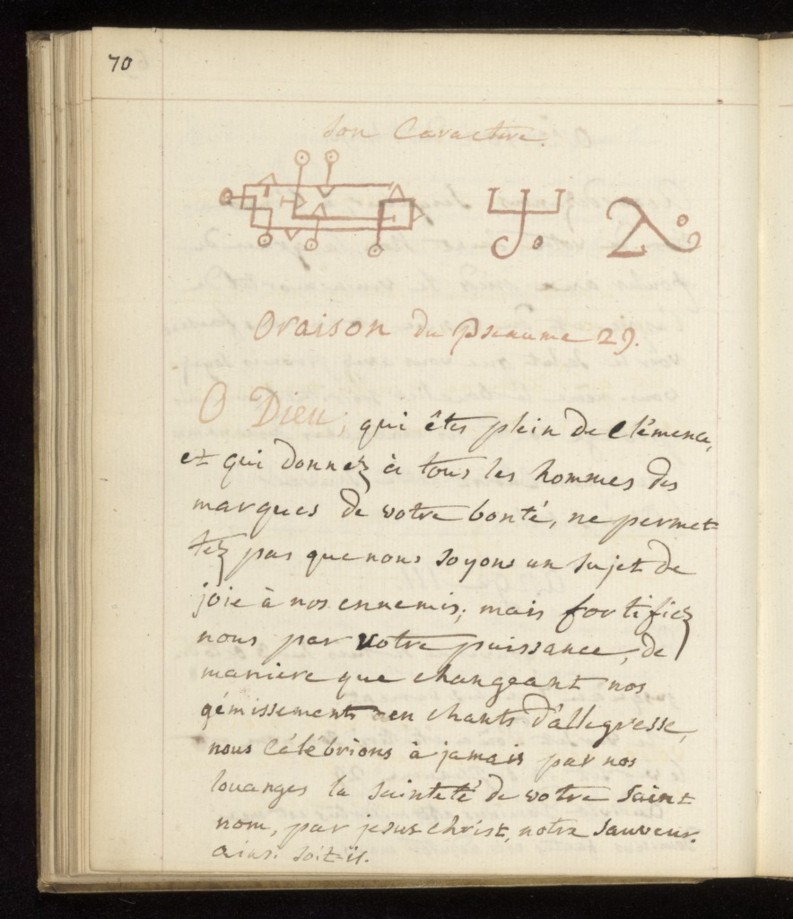 70
Son Caractere.
Oraison du Pseaume 29.
O Dieu, qui êtes plein de clémence,
et qui donnez à tous les hommes des
marques de votre bonté, ne permet-
tez pas que nous soyons un sujet de
joie à nos ennemis; mais fortifiez
nous par votre puissance, de
maniere que changeant nos
gémissements en chants d'allegresse,
nous célébrions à jamais par nos
louanges la sainteté de votre saint
nom, par jesus christ, notre sauveur.
ainsi soit-il.